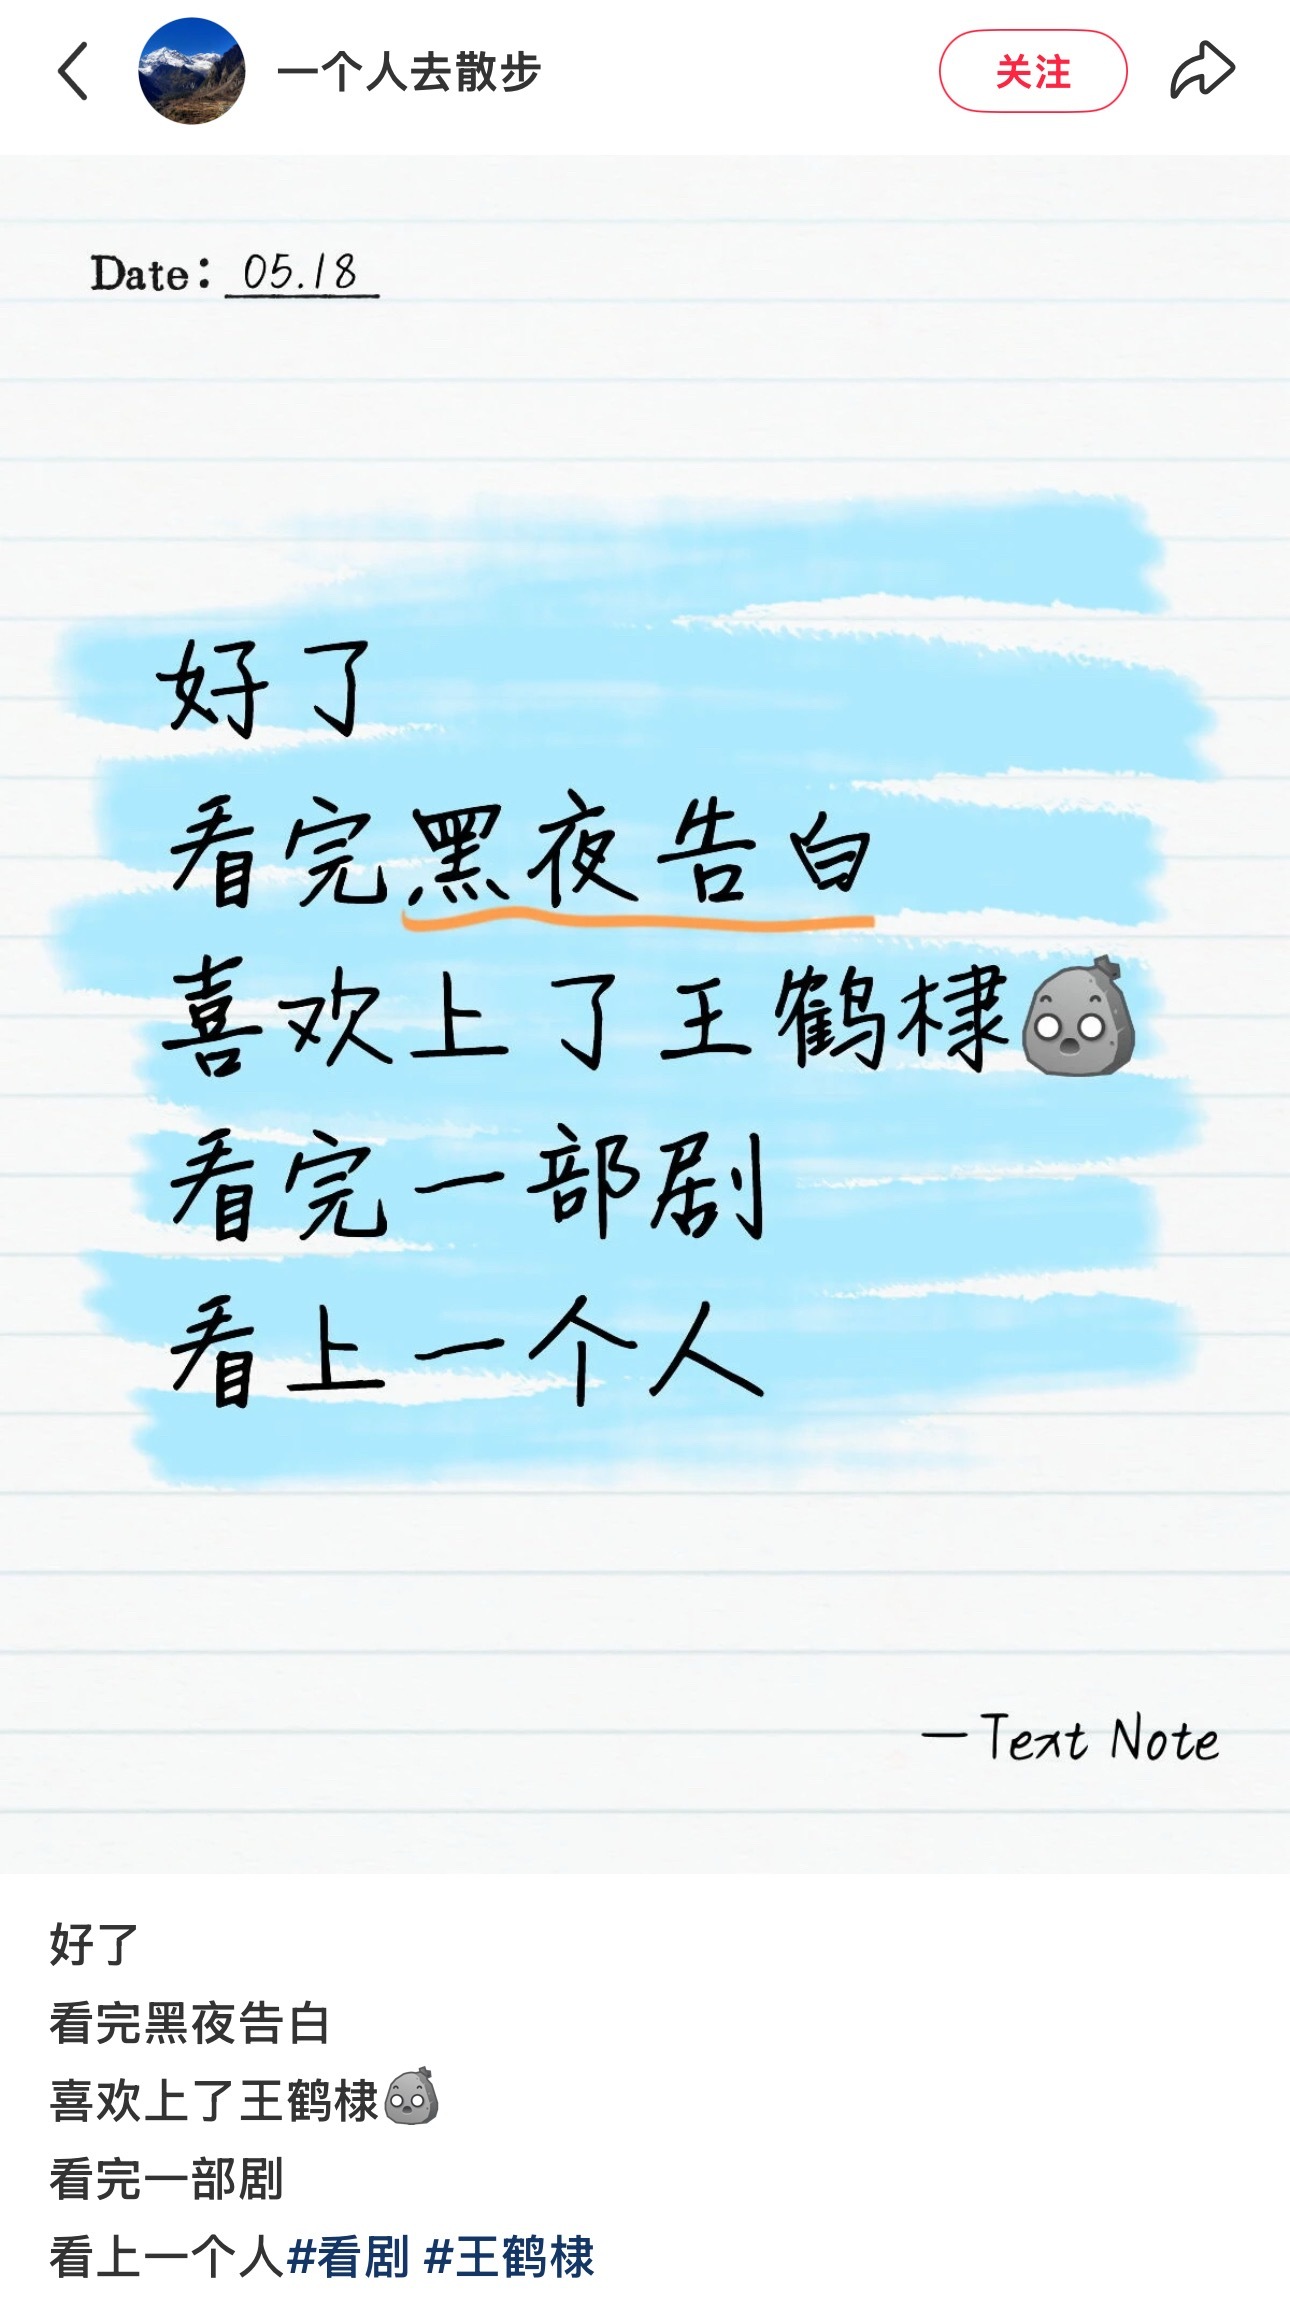 一个人去散步
关注
Date: 05.18
好了
看完黑夜告白
喜欢上了王鹤棣
看完一部剧
看上一个人
—Text Note
好了
看完黑夜告白
喜欢上了王鹤棣
看完一部剧
看上一个人#看剧 #王鹤棣